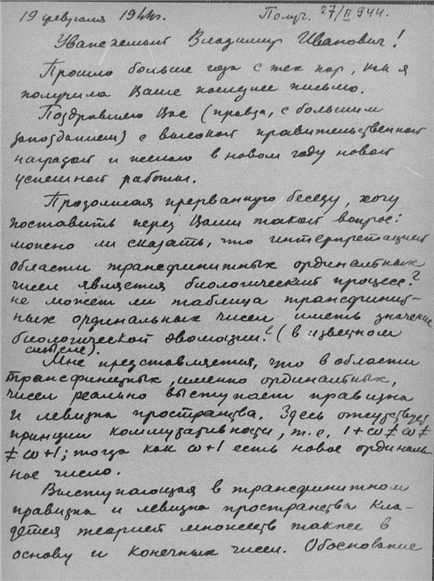 19 февраля 1944г. Получ. 27/II 944.
Уважаемый Владимир Иванович!
Прошло больше года с тех пор, как я
получила Ваше последнее письмо.
Поздравляю Вас (правда, с большим
запозданием) с высокой правительственной
наградой и желаю в новом году новой
успешной работы.
Продолжая прерванную беседу, хочу
поставить перед Вами такой вопрос:
можно ли сказать, что интерпретацией
области трансфинитных ординальных
чисел является биологический процесс?
не может ли таблица трансфинит-
ных ординальных чисел иметь значение
биологической эволюции? (в известном
смысле).
Мне представляется, что в области
трансфинитных, именно ординальных,
чисел реально выступает правизна
и левизна пространства. Здесь отсутствует
принцип коммутативности, т.е. 1+ω≠ω≠
≠ω+1; тогда как ω+1 есть новое ординаль-
ное число.
Выступающая в трансфинитном
правизна и левизна пространства кла-
дется теорией множеств также в
основу и конечных чисел. Обоснование